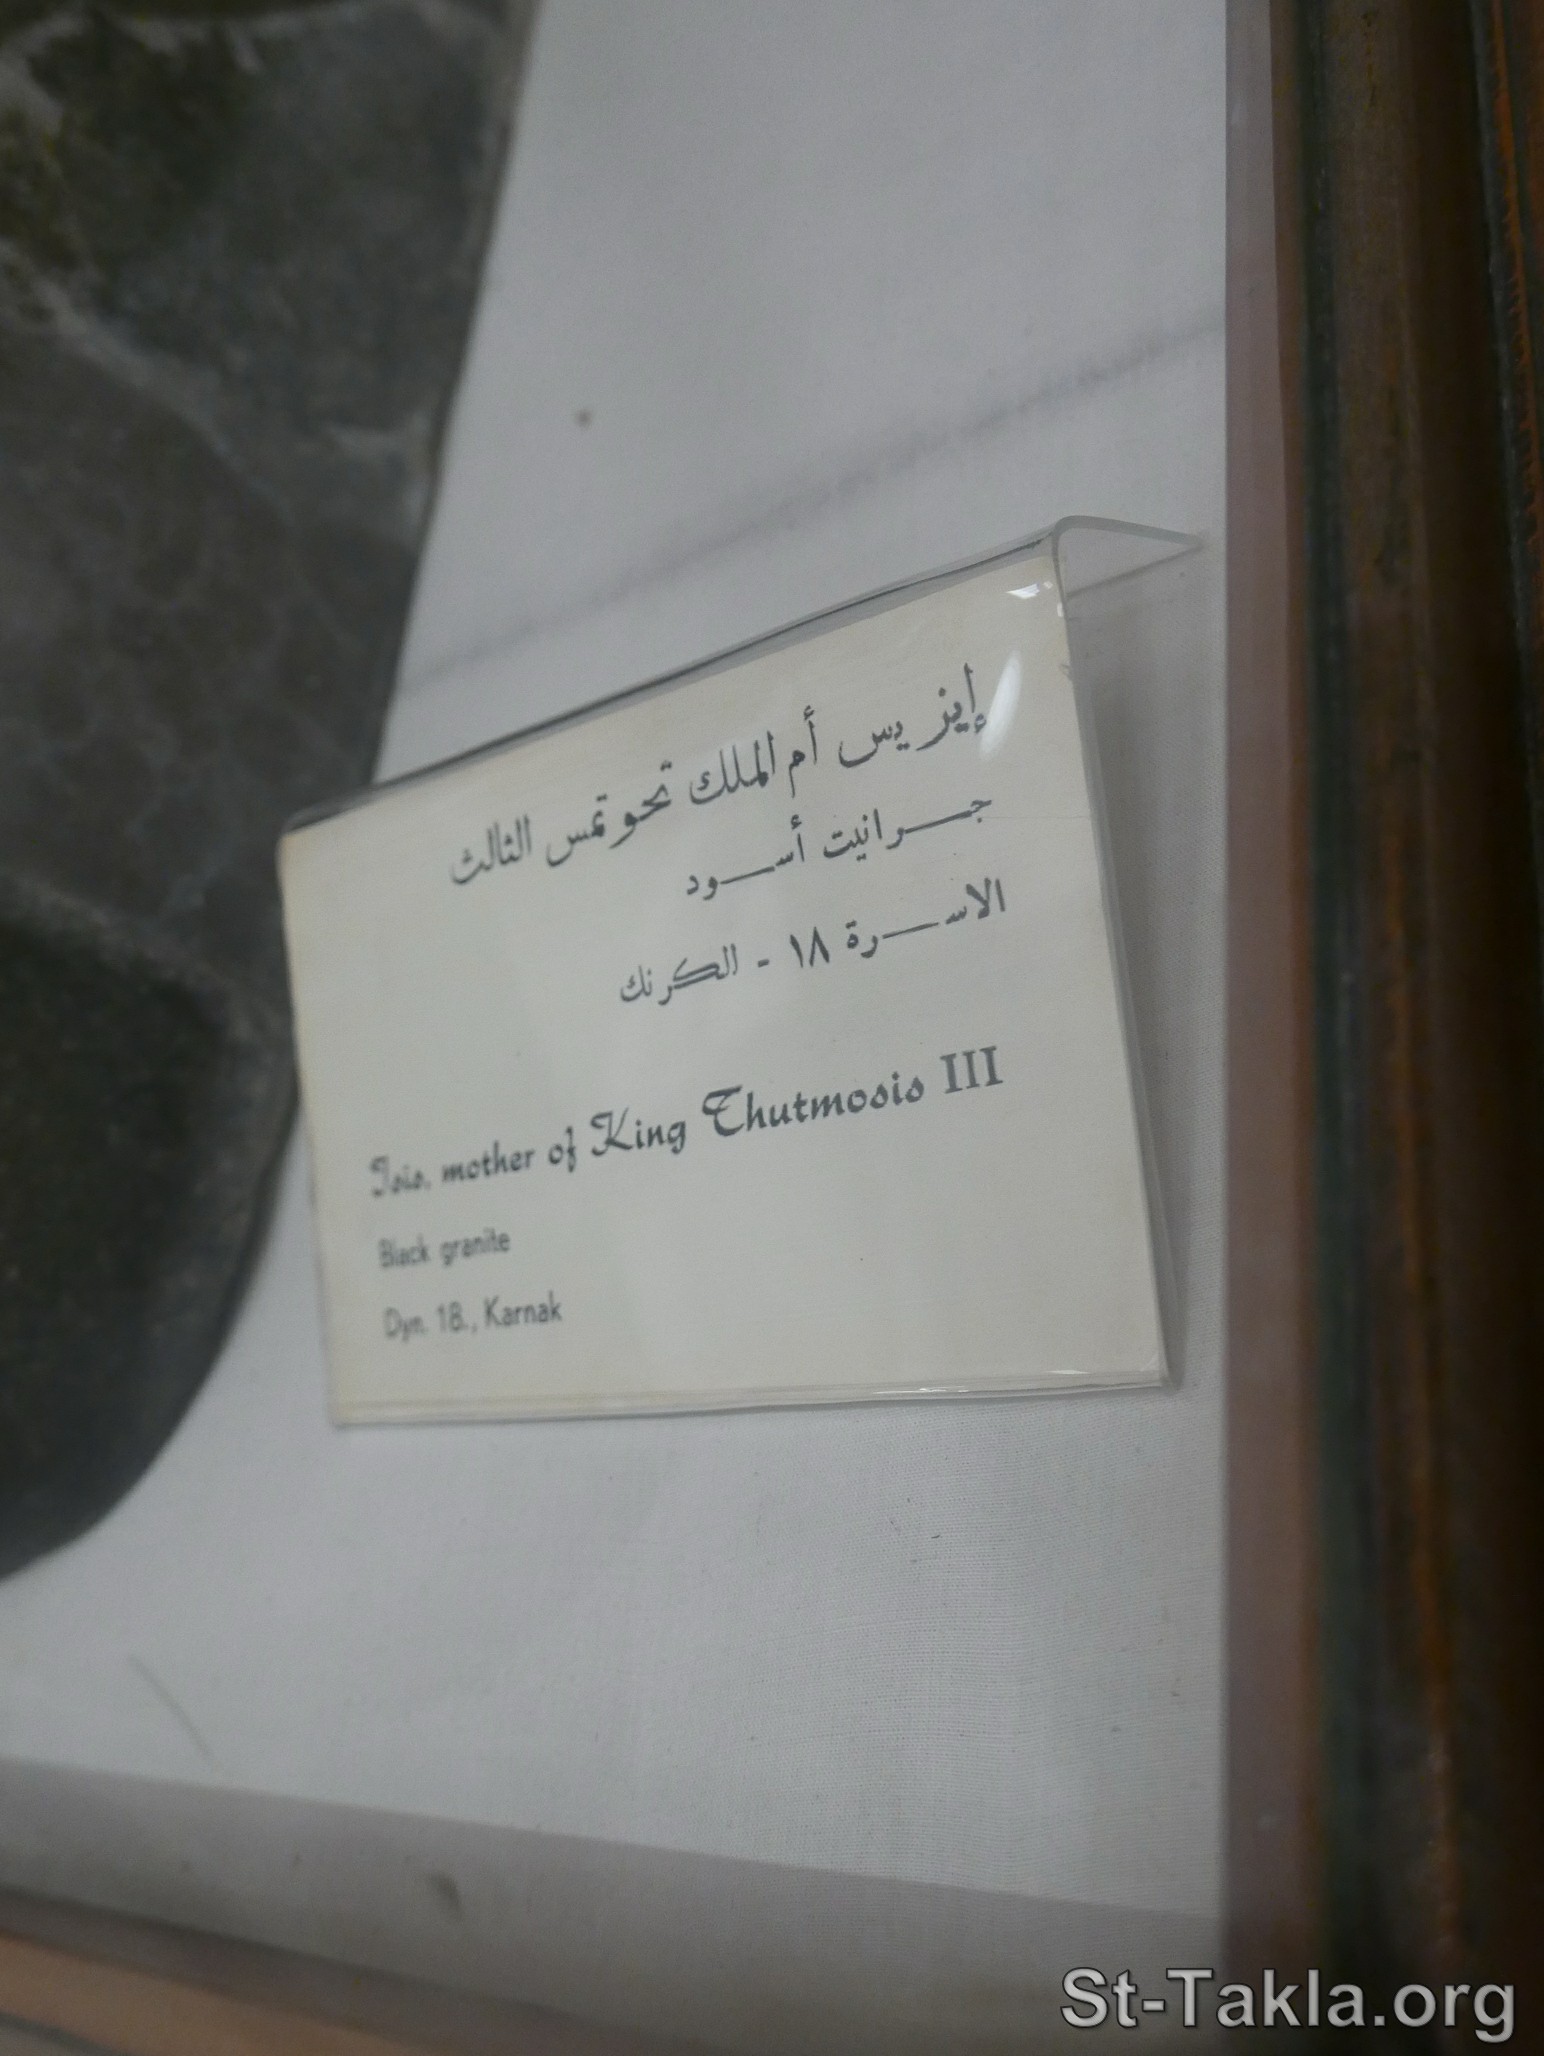 إيزيس أم الملك تحوتمس الثالث
جرانيت أسود
الاسرة ١٨ - الكرنك
Isis, mother of King Thutmosis III
Black granite
Dyn. 18., Karnak
St-Takla.org